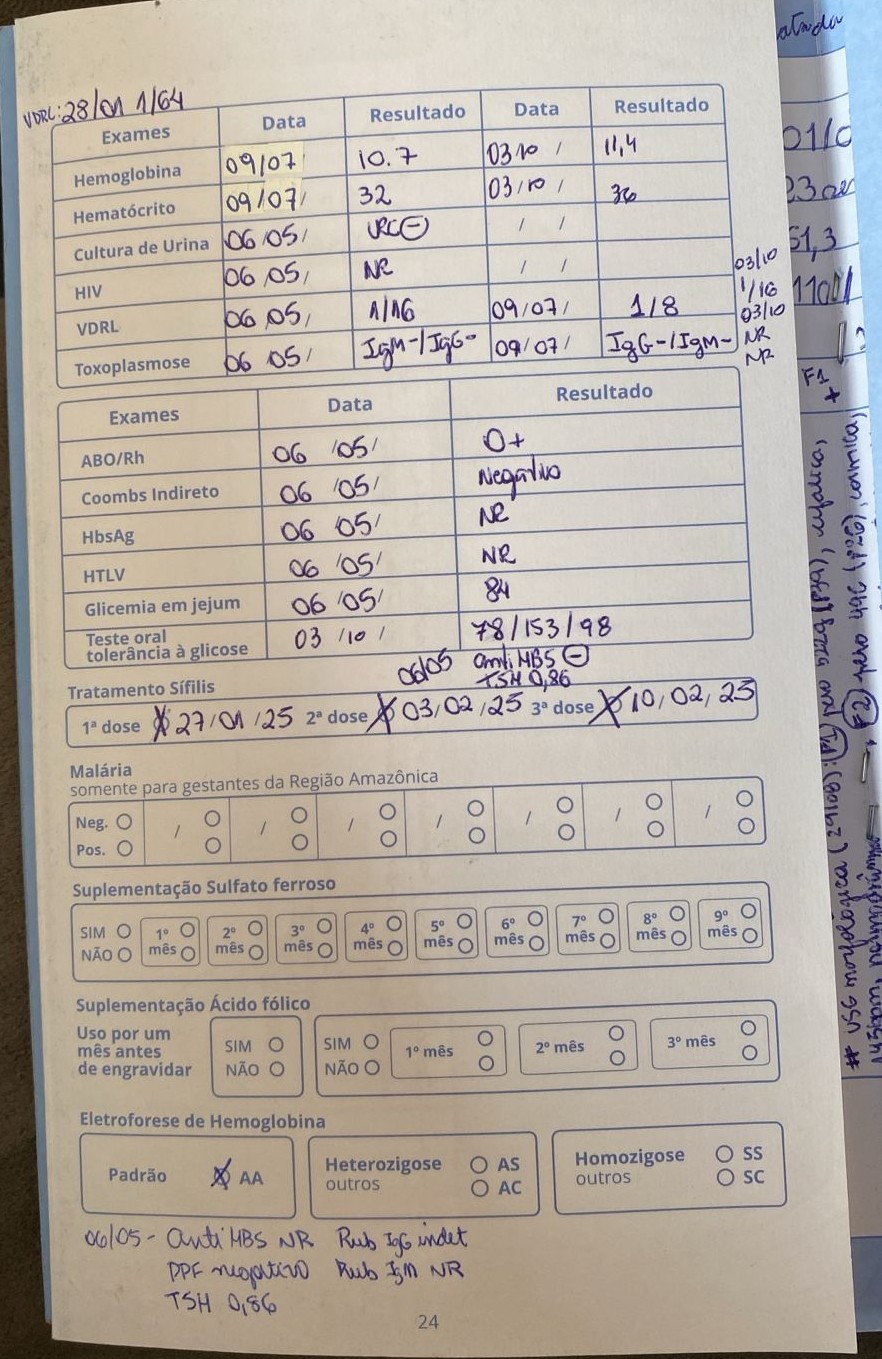 VDRL: 28/01 1/64
Exames Data Resultado Data Resultado
Hemoglobina 09/07/ 10.7 03/10 / 11,4
Hematócrito 09/07/ 32 03/10 / 36
Cultura de Urina 06/05/ URC⊖ / /
HIV 06/05/ NR / /
VDRL 06/05/ 1/16 09/07/ 1/8
Toxoplasmose 06/05/ IgM-/IgG- 09/07/ IgG-/IgM-
03/10
1/16
03/10
NR
NR
Exames Data Resultado
ABO/Rh 06/05/ O+
Coombs Indireto 06/05/ Negativo
HbsAg 06/05/ NR
HTLV 06/05/ NR
Glicemia em jejum 06/05/ 84
Teste oral
tolerância à glicose 03/10/ 78/153/98
06/05 anti HBS ⊖
TSH 0,86
Tratamento Sífilis
1ª dose 27/01/25 2ª dose 03/02/25 3ª dose 10/02/25
Malária
somente para gestantes da Região Amazônica
Neg. / / / / / / /
Pos.
Suplementação Sulfato ferroso
SIM 1º 2º 3º 4º 5º 6º 7º 8º 9º
NÃO mês mês mês mês mês mês mês mês mês
Suplementação Ácido fólico
Uso por um
mês antes
de engravidar
SIM SIM 1º mês 2º mês 3º mês
NÃO NÃO
Eletroforese de Hemoglobina
Padrão AA
Heterozigose AS
outros AC
Homozigose SS
outros SC
06/05 - Anti HBS NR Rub IgG indet
PPF negativo Rub IgM NR
TSH 0,86
24
01/0
51,3
110//
F1
+
# USG morfológica